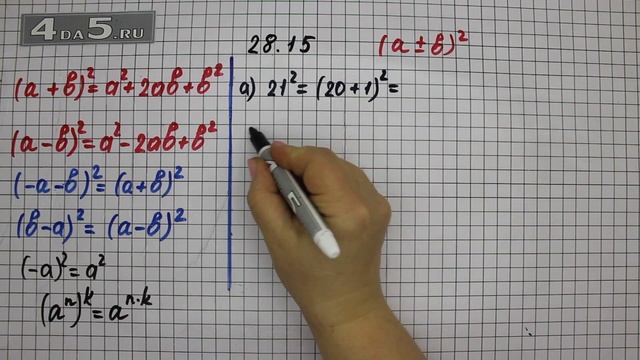 4DA5.RU
28.15 (a ± b)²
(a + b)² = a² + 2ab + b²
(a − b)² = a² − 2ab + b²
(−a − b)² = (a + b)²
(b − a)² = (a − b)²
(−a)² = a²
(aⁿ)ᵏ = aⁿ·ᵏ
а) 21² = (20 + 1)² =